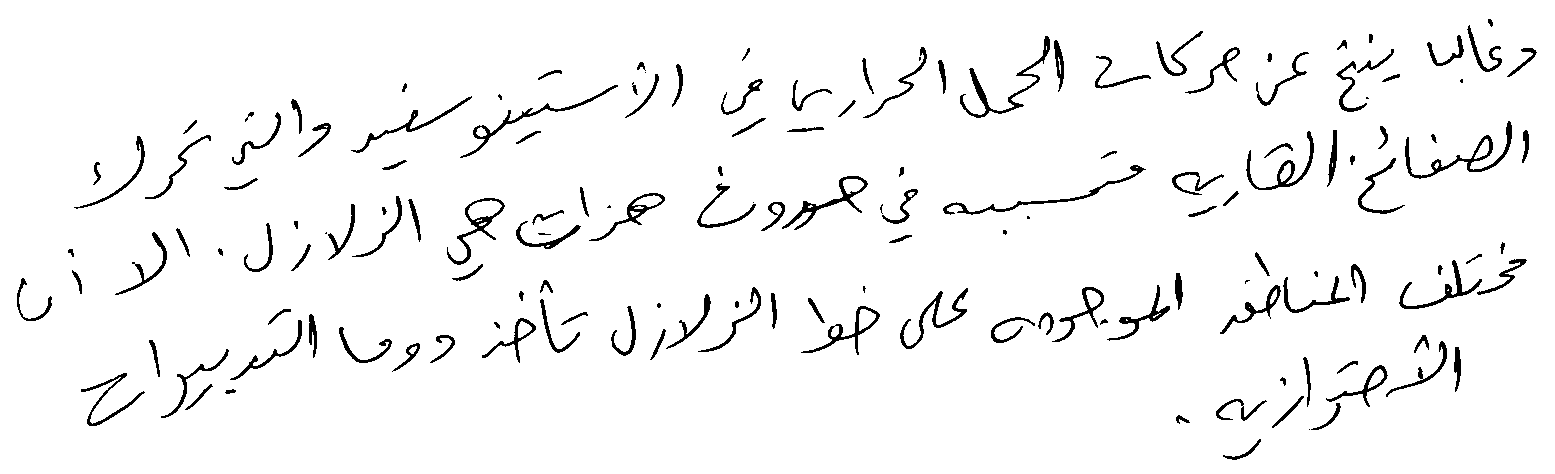 وغالبا ينتج عن حركات الحمل الحراريا في الأستينوسفير والتي تحرك
الصفائح القاريه متسببه في حدوث هزات هي الزلازل. الا أن
مختلف المناطق الموجوده على خط الزلازل تأخذ دوما التدبيرات
الأحترازيه.